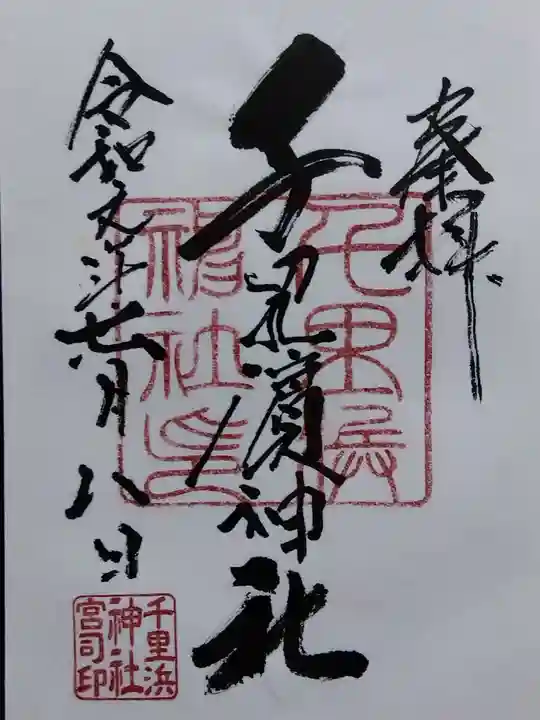 奉拝
千里濱神社
令和元年七月八日
千里浜
神社印
千里浜
神社
宮司印